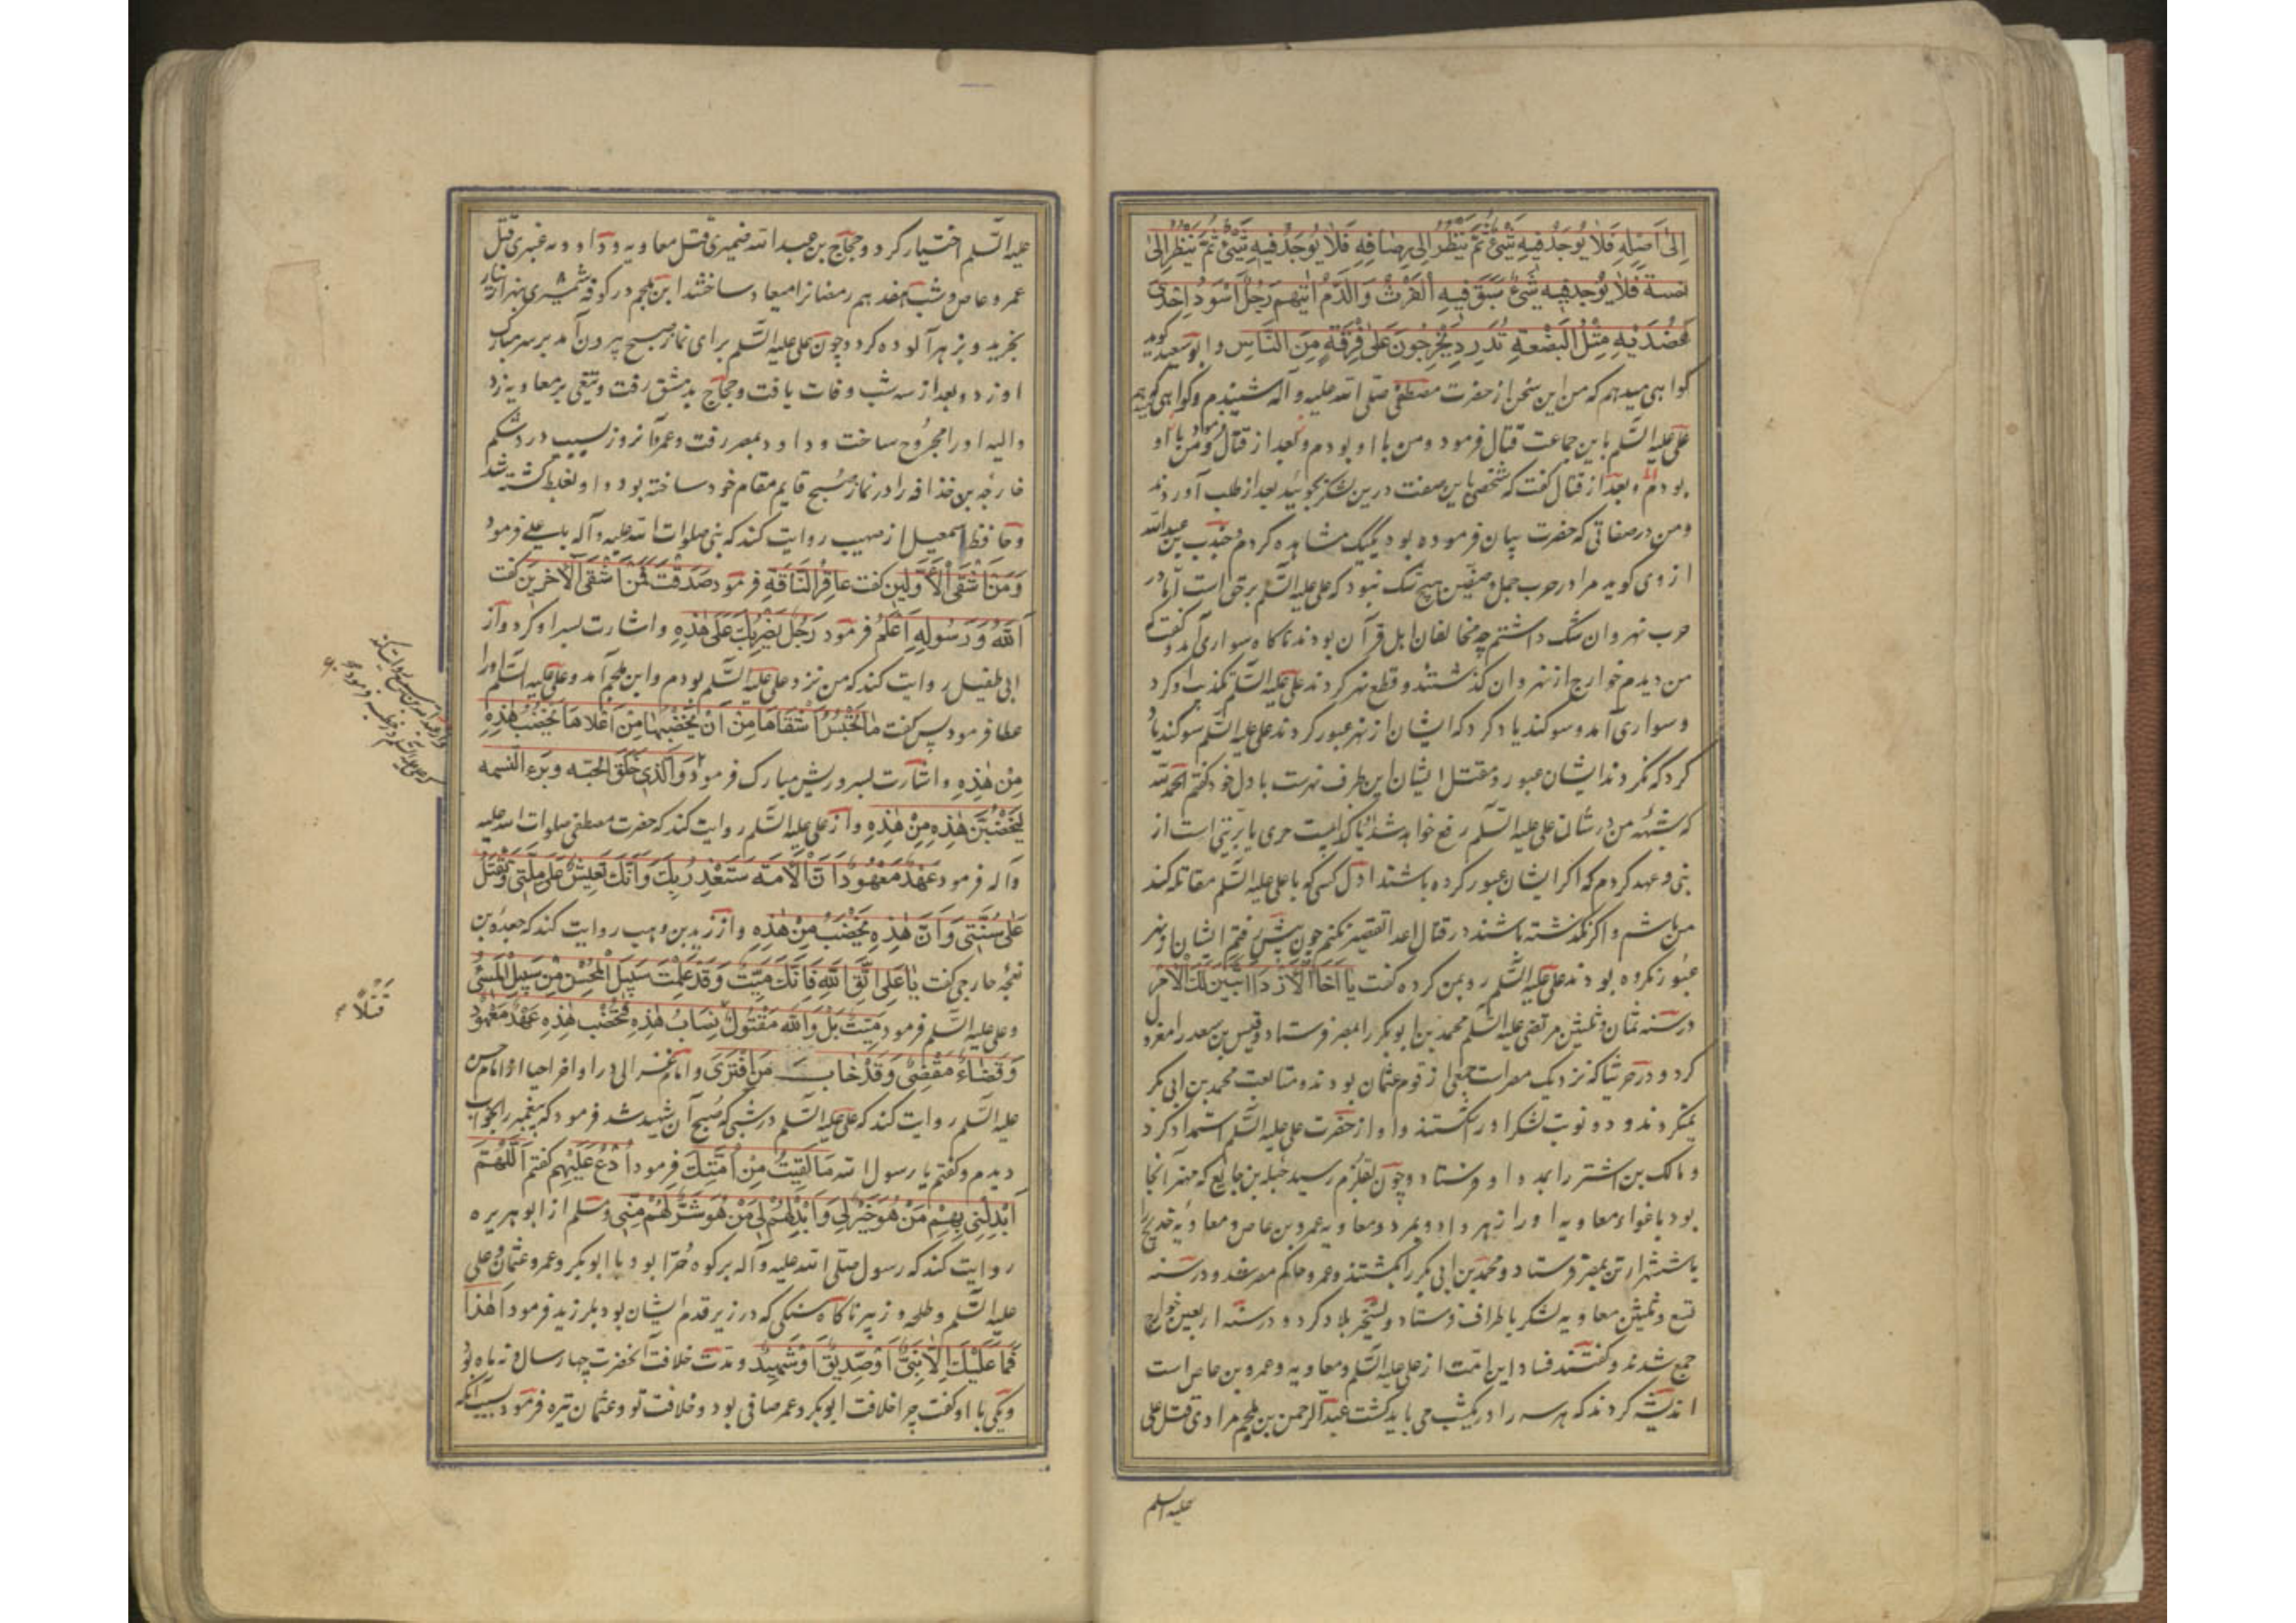 إِلىٰ أَصْلِهِ فَلَا يُوجَدُ فِيهِ شَيْءٌ ثُمَّ يَنْظُرُ إِلىٰ رِصَافِهِ فَلَا يُوجَدُ فِيهِ شَيْءٌ ثُمَّ يَنْظُرُ إِلىٰ
فَلَا يُوجَدُ فِيهِ شَيْءٌ سَبَقَ فِيهِ الْفَرْثَ وَالدَّمَ اٰيَتُهُمْ رَجُلٌ أَسْوَدُ إِحْدٰى
عَضُدَيْهِ مِثْلُ الْبَضْعَةِ تَدَرْدَرُ يَخْرُجُونَ عَلىٰ فِرْقَةٍ مِنَ النَّاسِ و ابو سعید کوید
کواهی میدهم که من این سخن از حضرت مصطفی صلی الله علیه و آله شنیدم و کواهی میدهم
علی علیه السلم با این جماعت قتال فرمود و من با او بودم و بعد از قتال فرمود من با او
بودم و بعد از قتال کفت که شخصی باین صفت درین لشکر بجوئید بعد از طلب آوردند
و من در صفاتی که حضرت بیان فرموده بود یکیک مشاهده کردم و جندب بن عبدالله
ازدی کوید مرا در حرب جمل و صفین هیچ شک نبود که علی علیه السلم بر حق است اما در
حرب نهروان شک داشتم چه مخالفان اهل قرآن بودند ناکاه سواری آمد و کفت که
من دیدم خوارج از نهروان کذشتند و قطع نهر کردند علی علیه السلم تکذیب او کرد
و سواری آمد و سوکند یاد کرد که ایشان از نهر عبور کردند علی علیه السلم سوکند یاد
کرد که نکردند ایشان عبور و مقتل ایشان این طرف نهرست با دل خود کفتم الحمد لله
که شبهه من در شان علی علیه السلم رفع خواهد شد یا کذابیست جری یا بر بینه است از
نبی و عهد کردم که اکر ایشان عبور کرده باشند اول کسی که با علی علیه السلم مقاتله کند
من باشم و اکر نکذشته باشند در قتال اعدا تقصیر نکنم چون پیش رفتم ایشان از نهر
عبور نکرده بودند علی علیه السلم رو بمن کرده کفت یَا أَخَا الْأَزْدِ أَتَبَيَّنَ لَكَ الْأَمْرُ
در سنه ثمان و ثلثین مرتضی علیه السلم محمد بن ابو بکر را بمصر فرستاد و قیس بن سعد را معزول
کرد و در خربتا که نزدیک مصرست جمعی از قوم عثمان بودند و متابعت محمد بن ابی بکر
نمیکردند و دو نوبت لشکر او را شکستند و او از حضرت علی علیه السلم استمداد کرد
و مالک بن اشتر را بمدد او فرستاد و چون بقلزم رسید که مهتر آنجا
بود باغواء معاویه او را زهر داد و بمرد و معاویه عمرو بن عاص و معاویه خدیج را
با شش هزار تن بمصر فرستاد و محمد بن ابی بکر را بکشتند و عمرو حاکم مصر شد و در سنه
تسع و ثلثین معاویه لشکر باطراف فرستاد و تسخیر بلاد کرد و در سنه اربعین خوارج
جمع شدند و کفتند فساد این امت از علی علیه السلم و معاویه و عمرو بن عاص است
اندیشه کردند که هر سه را در یکشب می باید کشت عبد الرحمن بن ملجم مرادی قتل علی
علیه السلم
علیه السلم اختیار کرد و حجاج بن عبد الله ضمیری قتل معاویه و داوویه عنبری قتل
عمرو عاص و شب هفدهم رمضان را میعاد ساختند ابن ملجم در کوفه شمشیری بهزار دینار
بخرید و بزهر آلوده کرد و چون علی علیه السلم برای نماز صبح بیرون آمد بر سر مبارک
او زد و بعد از سه شب وفات یافت و حجاج بدمشق رفت و تیغی بر معاویه زد
و الیه او را مجروح ساخت و داود بمصر رفت و عمرو آن روز بسبب درد شکم
خارجه بن حذافه را در نماز صبح قایم مقام خود ساخته بود و او بغلط کشته شد
و حافظ اسمعیل از صهیب روایت کند که نبی صلوات الله علیه و آله با علی فرمود
وَمَنْ أَشْقَى الْأَوَّلِينَ کفت عَاقِرُ النَّاقَةِ فرمود صَدَقْتَ فَمَنْ أَشْقَى الْآخِرِينَ کفت
اَللهُ وَرَسُولُهُ أَعْلَمُ فرمود رَجُلٌ يَضْرِبُكَ عَلىٰ هٰذِهِ و اشارت بسر او کرد و از
ابی طفیل روایت کند که من نزد علی علیه السلم بودم و ابن ملجم آمد و علی علیه السلم او را
عطا فرمود پس کفت مَا يَحْبِسُ أَشْقَاهَا مِنْ أَنْ يَخْضِبَهَا مِنْ أَعْلَاهَا يَخْضِبُ هٰذِهِ
مِنْ هٰذِهِ و اشارت بسر و ریش مبارک فرمود وَالَّذِي خَلَقَ الْحَبَّةَ وَبَرَءَ النَّسَمَةَ
لَيَخْضِبَنَّ هٰذِهِ مِنْ هٰذِهِ و از علی علیه السلم روایت کند که حضرت مصطفی صلوات الله علیه
و آله فرمود عَهْدٌ مَعْهُودٌ أَنَّ الْأُمَّةَ سَتَغْدِرُ بِكَ وَأَنَّكَ تَعِيشُ عَلىٰ مِلَّتِي وَتُقْتَلُ
عَلىٰ سُنَّتِي وَأَنَّ هٰذِهِ يُخْضَبُ مِنْ هٰذِهِ و از زید بن وهب روایت کند که جعده بن
نعجه خارجی کفت يَا عَلِي اتَّقِ اللهَ فَإِنَّكَ مَيِّتٌ وَقَدْ عَلِمْتَ سَبِيلَ الْمُحْسِنِ مِنْ سَبِيلِ الْمُسِيْءِ
و علی علیه السلم فرمود مَيِّتٌ بَلْ وَاللهِ مَقْتُولٌ يُصَابُ هٰذِهِ فَتُخْضَبُ هٰذِهِ عَهْدٌ مَعْهُودٌ
وَقَضَاءٌ مَقْضِيٌّ وَقَدْ خَابَ مَنِ افْتَرَىٰ و امام غزالی در اواخر احیا از امام حسن
علیه السلم روایت کند که علی علیه السلم در شبی که صبح آن شهید شد فرمود که پیغمبر را بخواب
دیدم و کفتم یا رسول الله مَا لَقِيتُ مِنْ أُمَّتِكَ فرمود اُدْعُ عَلَيْهِمْ کفتم اَللّٰهُمَّ
أَبْدِلْنِي بِهِمْ مَنْ هُوَ خَيْرٌ لِي وَأَبْدِلْهُمْ بِي مَنْ هُوَ شَرٌّ لَهُمْ مِنِّي و مسلم از ابو هریره
روایت کند که رسول صلی الله علیه و آله بر کوه حرا بود با ابو بکر و عمر و عثمان و علی
علیه السلم و طلحه و زبیر ناکاه سنکی که در زیر قدم ایشان بود بلرزید فرمود اهْدَأْ
فَمَا عَلَيْكَ إِلَّا نَبِيٌّ أَوْ صِدِّيقٌ أَوْ شَهِيدٌ و مدت خلافت آنحضرت چهار سال و نه ماه بود
و یکی با او کفت چرا خلافت ابو بکر و عمر صافی بود و خلافت تو و عثمان تیره فرمود بسبب آنکه
قَتْلًا